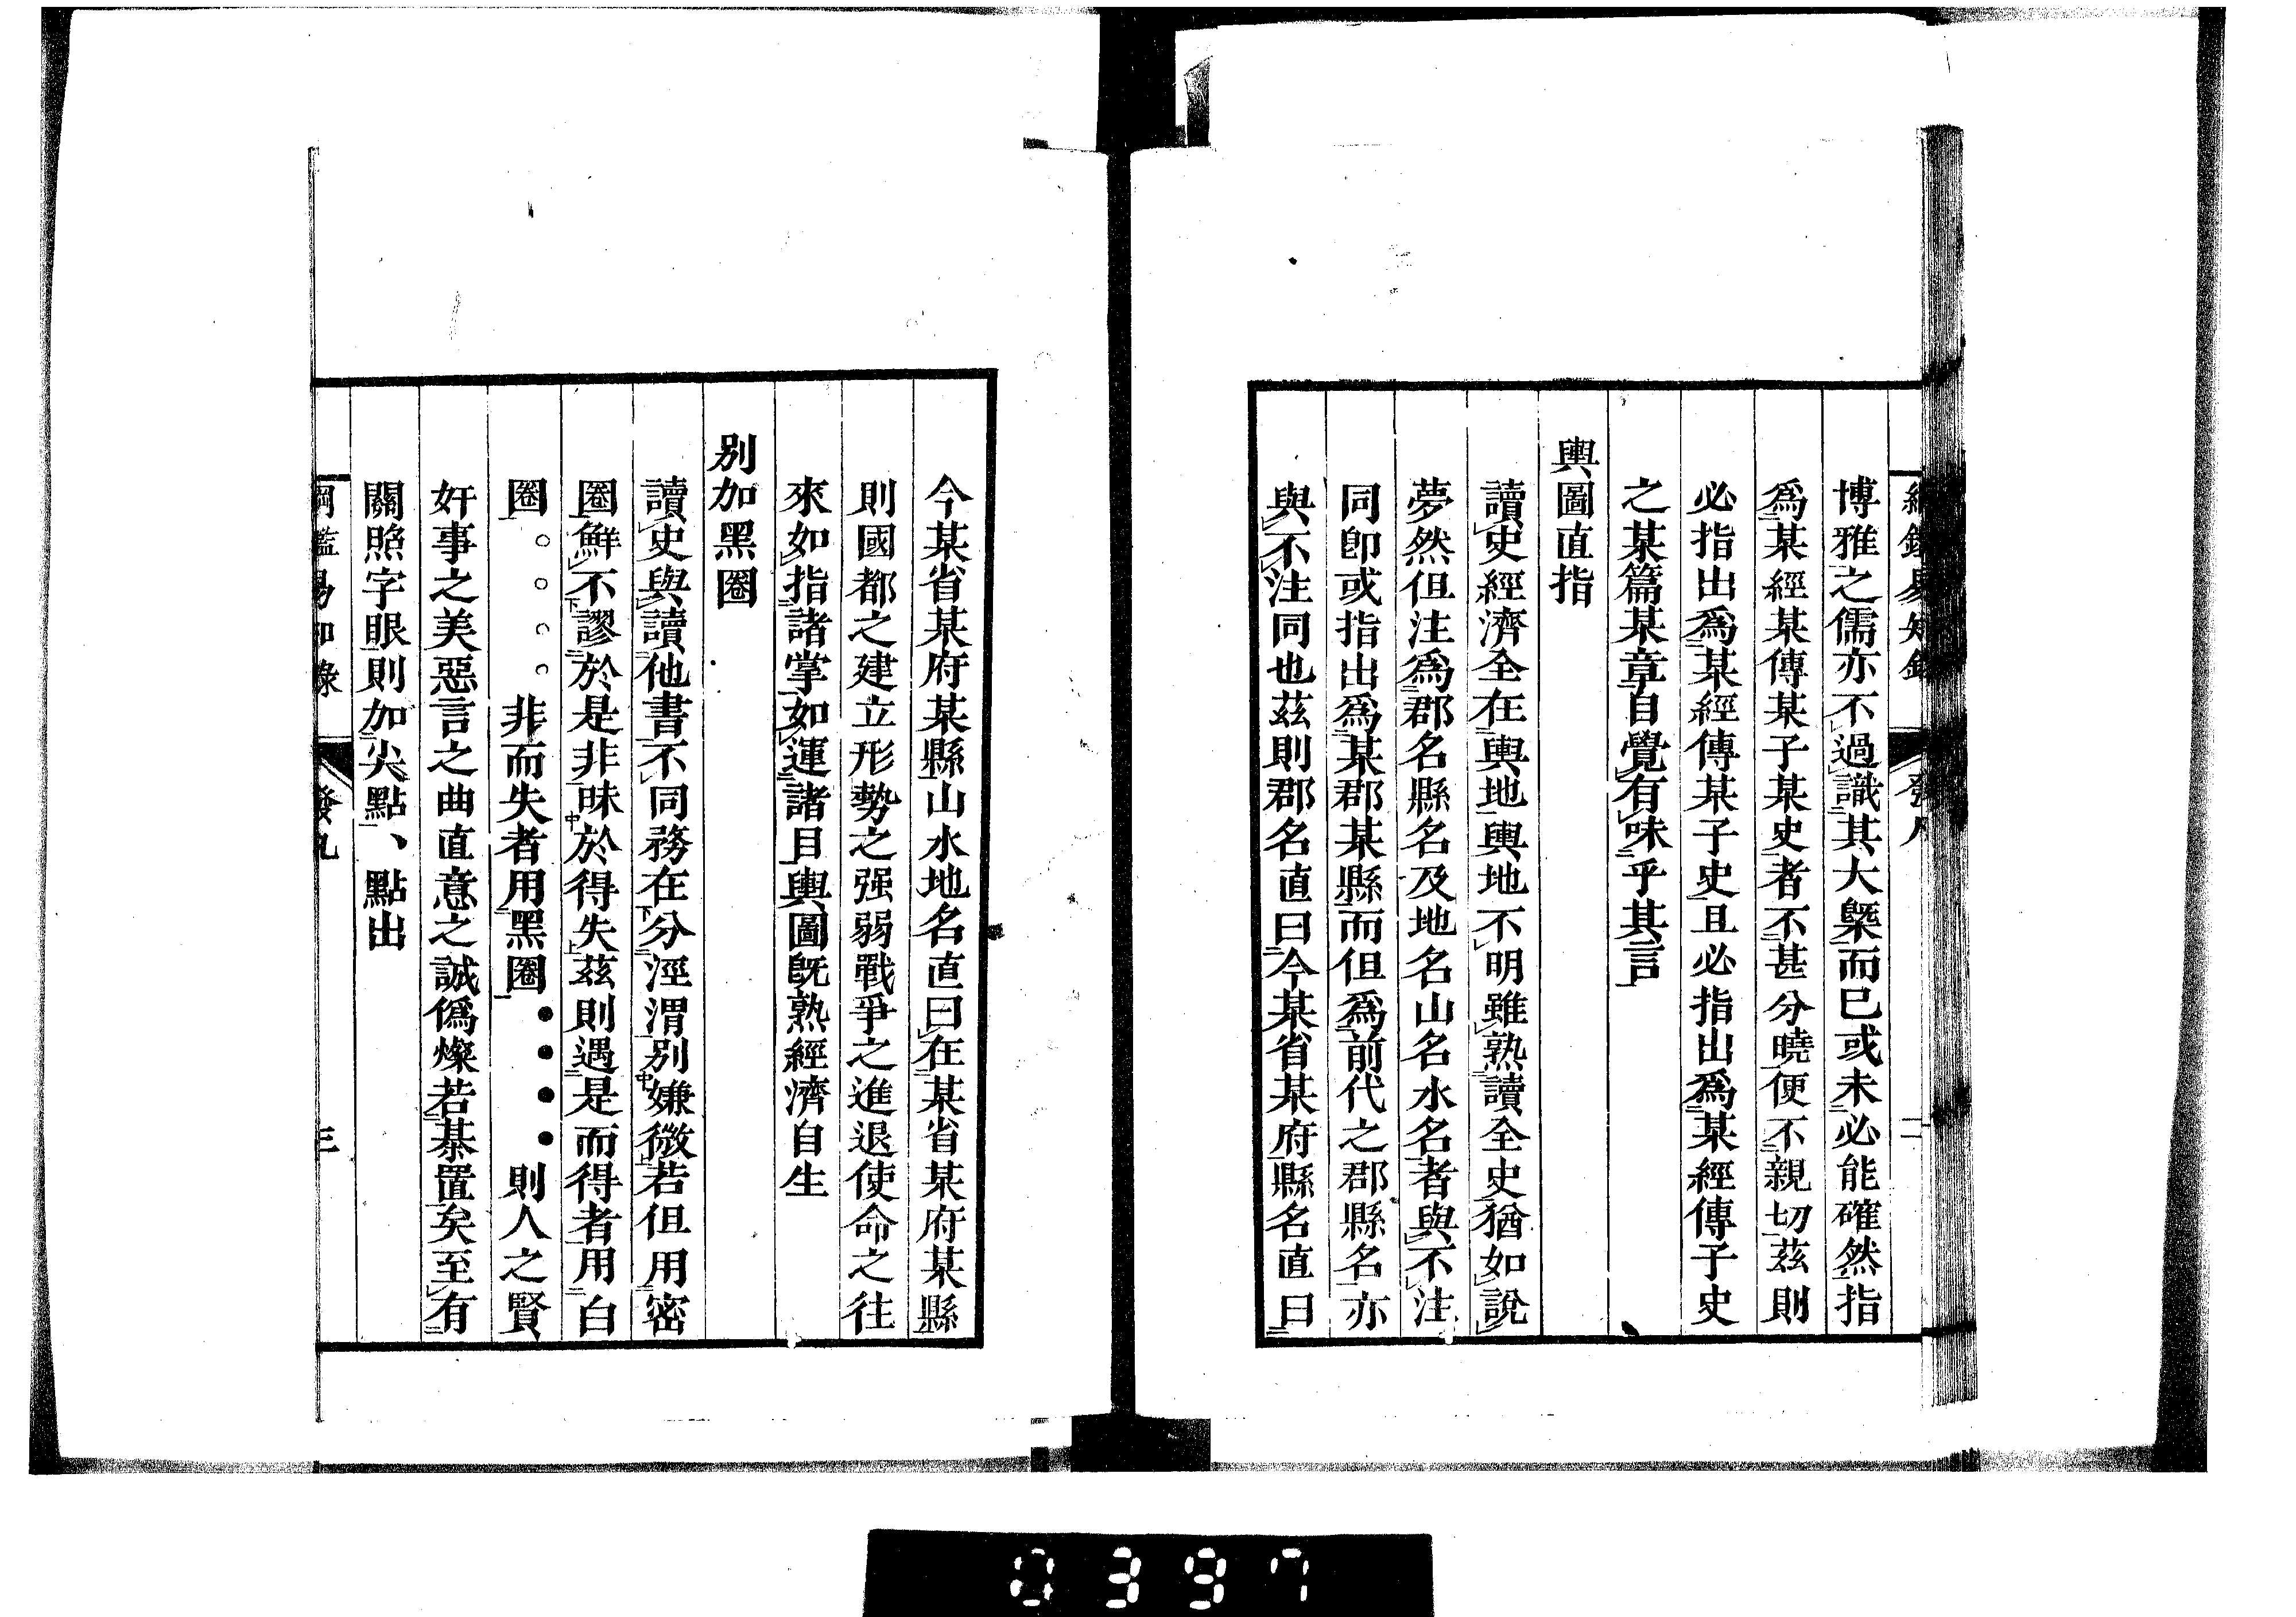 博雅之儒亦不過識其大槩而已或未必能確然指
爲某經某傳某子某史者不甚分曉便不親切茲則
必指出爲某經傳某子史且必指出爲某經傳子史
之某篇某章自覺有味乎其言
輿圖直指
讀史經濟全在輿地輿地不明雖熟讀全史猶如說
夢然但注爲郡名縣名及地名山名水名者與不注
同卽或指出爲某郡某縣而但爲前代之郡縣名亦
與不注同也茲則郡名直曰今某省某府縣名直曰
今某省某府某縣山水地名直曰在某省某府某縣
則國都之建立形勢之强弱戰爭之進退使命之往
來如指諸掌如運諸目輿圖旣熟經濟自生
别加黑圈
讀史與讀他書不同務在分涇渭别嫌微若但用密
圈鮮不謬於是非昧於得失茲則遇是而得者用白
圈。。。。非而失者用黑圈●●●●則人之賢
奸事之美惡言之曲直意之誠僞燦若棊置矣至有
關照字眼則加尖點、點出
綱鑑易知錄 發凡 三
0397